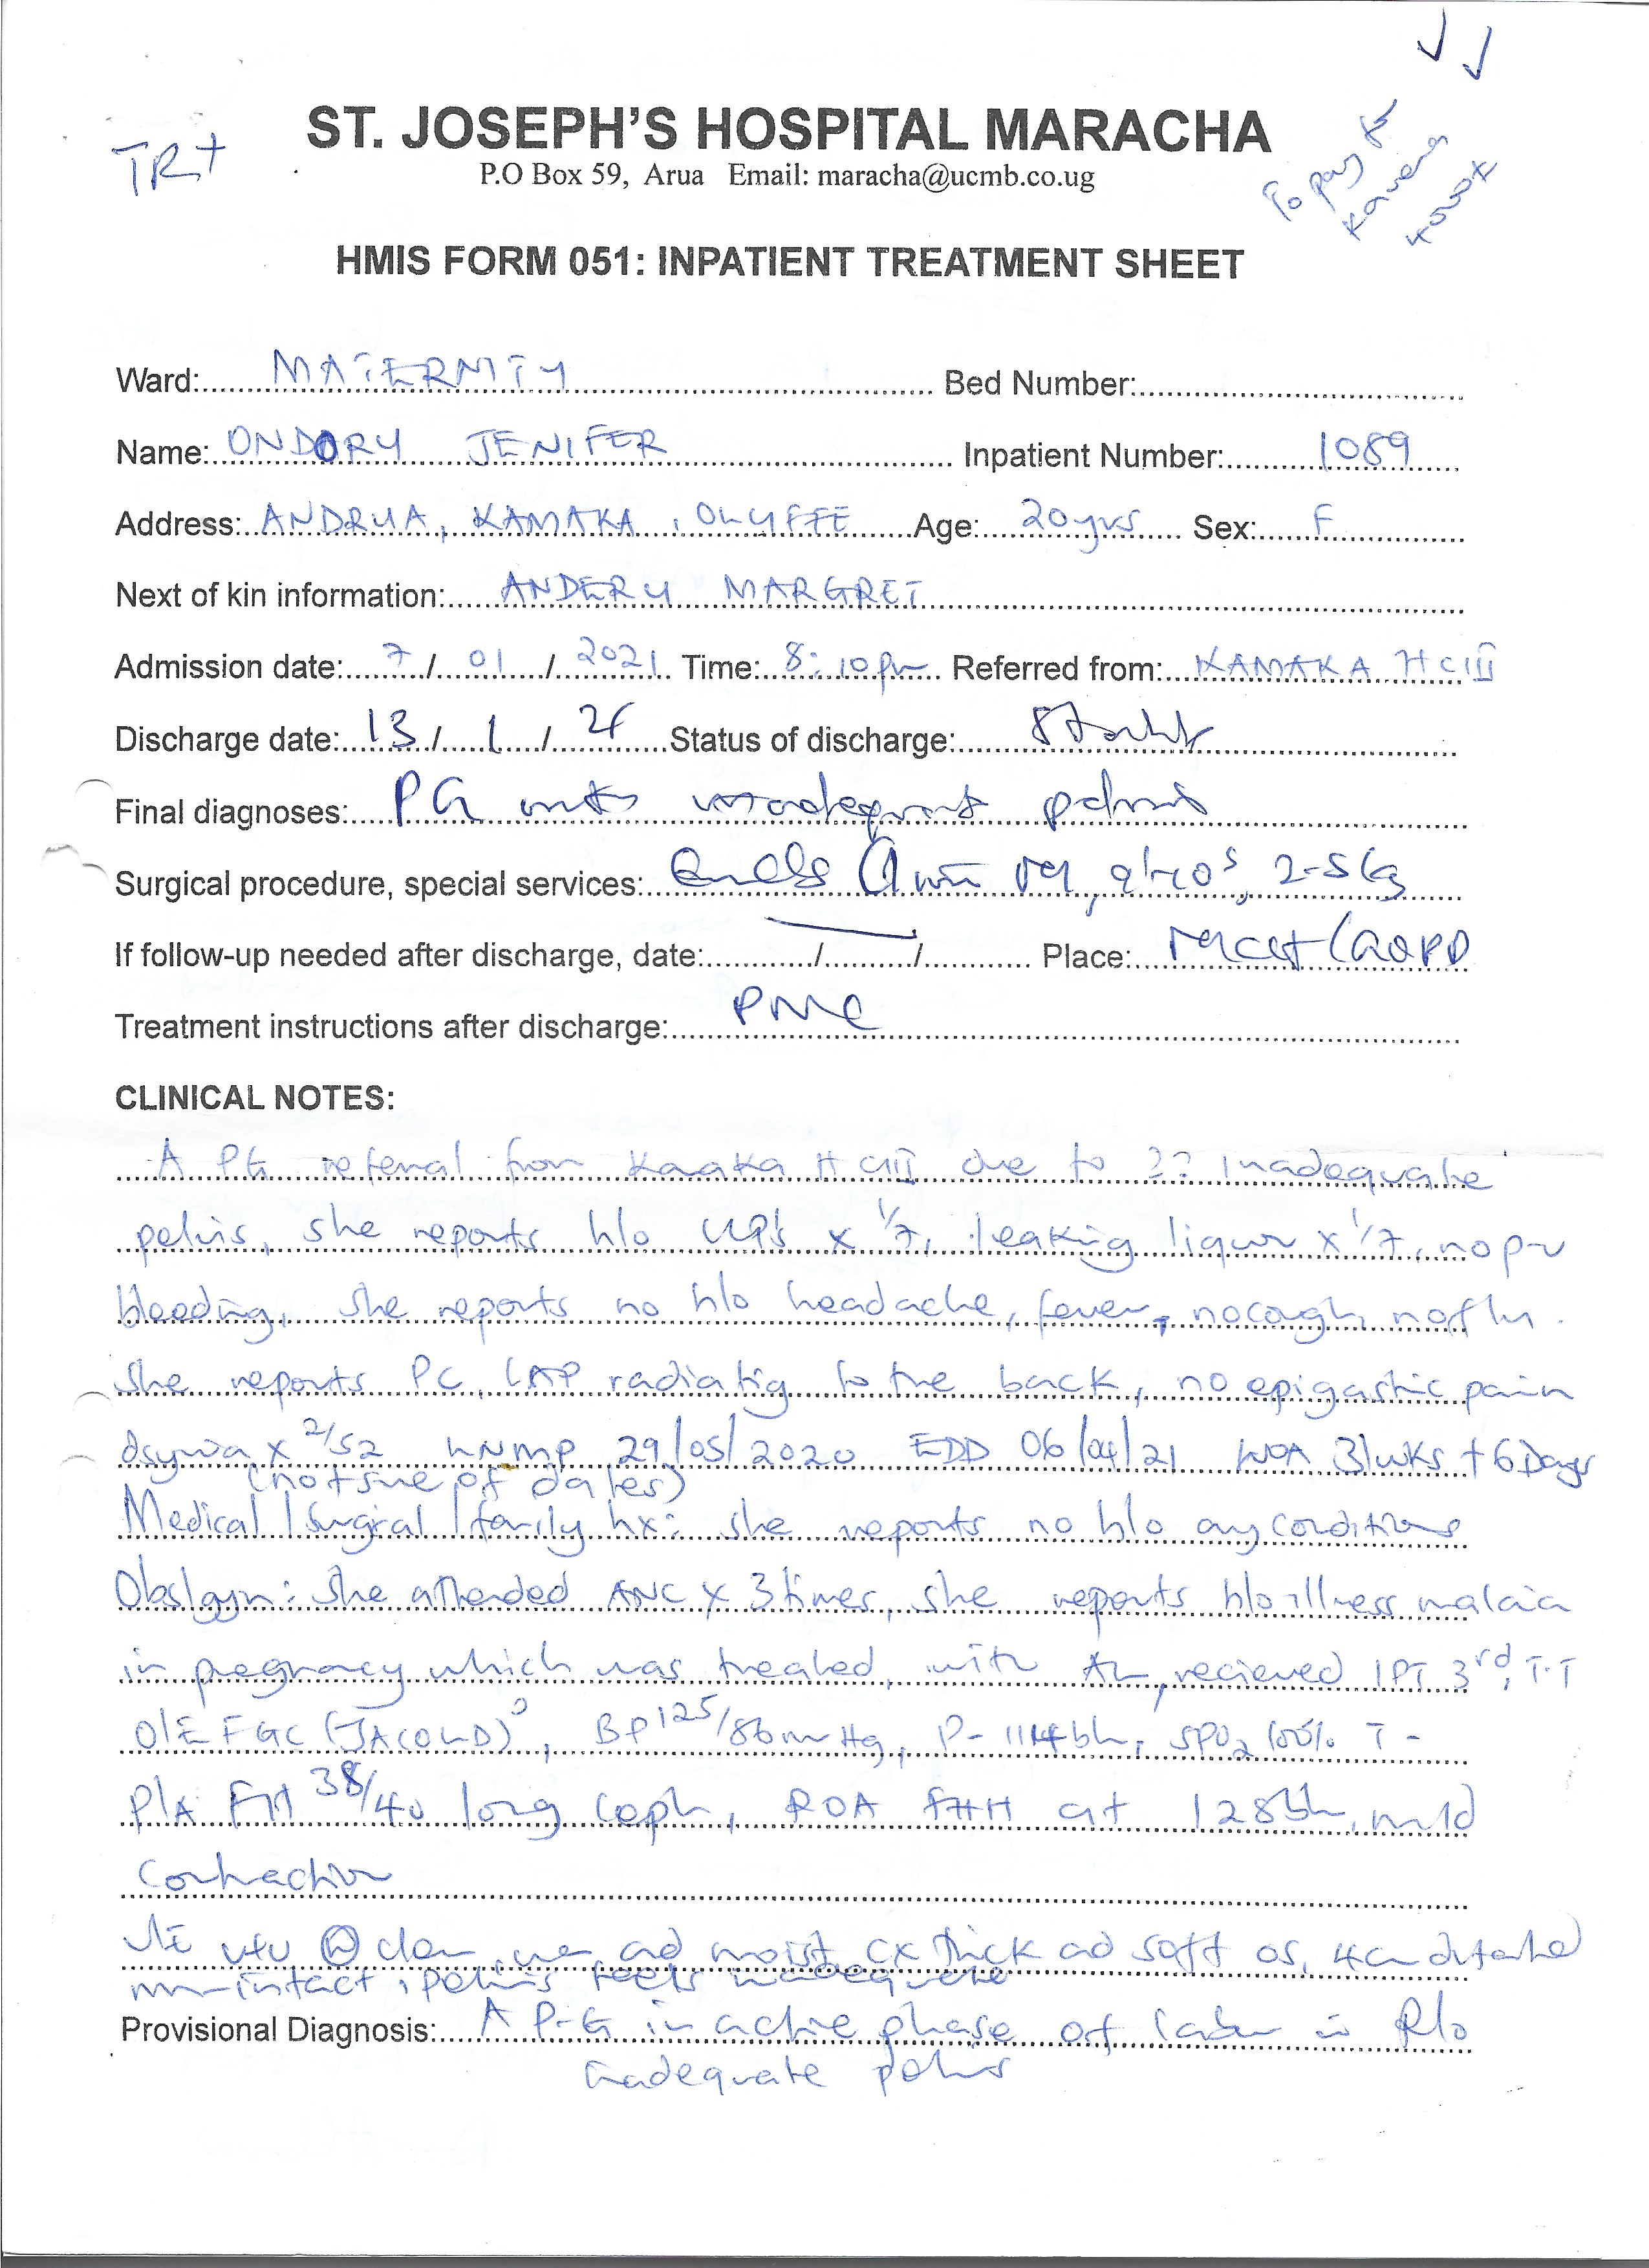 TR+
ST. JOSEPH'S HOSPITAL MARACHA
P.O Box 59, Arua Email: maracha@ucmb.co.ug
To pay
HMIS FORM 051: INPATIENT TREATMENT SHEET
Ward: MATERNITY Bed Number:
Name: ONDORU JENIFER Inpatient Number: 1089
Address: ANDRUA, KAMAKA, OLUFFE Age: 20yrs Sex: F
Next of kin information: ANDERU MARGRET
Admission date: 7/01/2021 Time: 8:10pm Referred from: KAMAKA HCIII
Discharge date: 13/1/21 Status of discharge: Stable
Final diagnoses: PG with inadequate pelvis
Surgical procedure, special services: 2-5kg
If follow-up needed after discharge, date: / / Place:
Treatment instructions after discharge: PNC
CLINICAL NOTES:
A PG referral from Kaaka HCIII due to ?? inadequate
pelvis, she reports h/o x 1/7, leaking liquor x 1/7, no p-v
bleeding, she reports no h/o headache, fever, no cough, no flu.
she reports PC, LAP radiatig to the back, no epigastric pain
x 2/52 LNMP 29/05/2020 EDD 06/04/21 WOA 31wks + 6 Days
(not sure of dates)
Medical/Surgical/family hx: she reports no h/o any conditions
Obs/gyn: she attended ANC x 3 times, she reports h/o illness malaria
in pregnancy which was treated, with AL, recieved IPT 3rd, T.T
O/E FGC (JACOLD)°, BP 125/86mmHg, P- 114b/m, SPO2 100% T -
P/A FH 38/40 long ceph, ROA FHH at 128b/m, mild
contraction
VE clean, and moist, CX thick ad soft os, 4cm dilated
intact, pelvis feels inadequate
Provisional Diagnosis: A P-G in active phase of labour R/o
inadequate pelvis